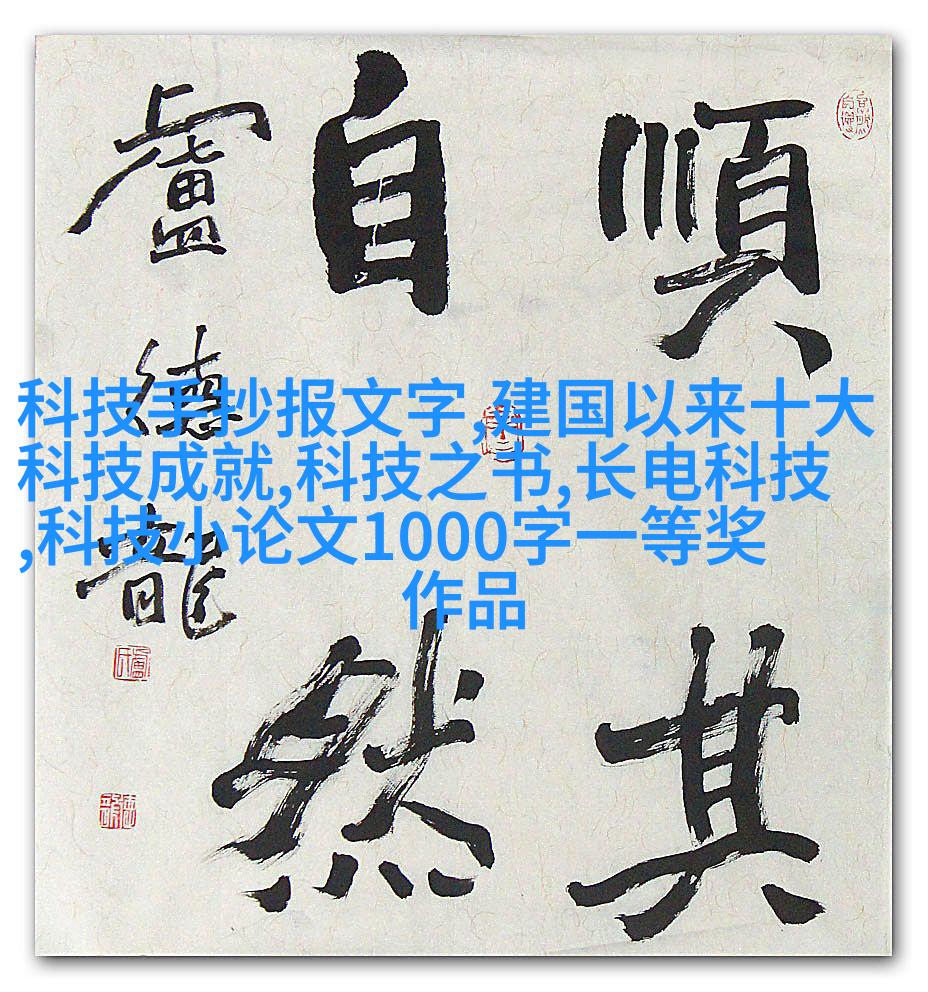 順其
自然
盧德龍
科技手抄报文字,建国以来十大
科技成就,科技之书,长电科技
,科技小论文1000字一等奖
作品